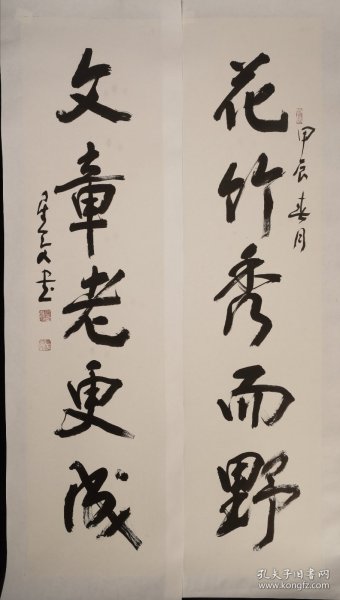 花竹秀而野
甲辰春月
文章老更成
书
孔夫子旧书网
www.kongfz.com